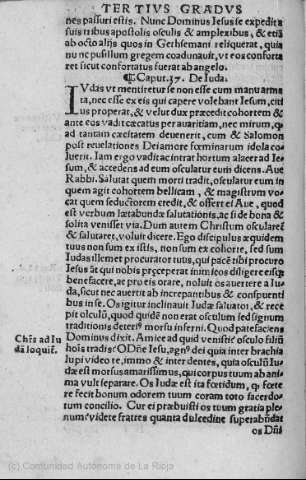 TERTIVS GRADVS
nes passuri estis. Nunc Dominus Iesus se expedit a
suis tribus apostolis osculis & amplexibus, & etiã
ab octo alijs quos in Gethsemani reliquerat, quia
nu nc pusillum gregem coadunauit, vt eos conforta
ret sicut confortatus fuerat ab angelo.
¶ Caput. 37. De Iuda.
IVdas vt mentiretur se non esse cum manu arma
ta, nec esse ex eis qui capere volebant Iesum, citi
us properat, & velut dux præcedit cohortem &
ante eos vadit cæcatus per auaritiam, nec mirum, q
ad tantam cæcitatem deuenerit, cum & Salomon
post reuelationes Dei amore fœminarum idola co
luerit. Iam ergo vadit ac intrat hortum alacer ad Ie-
sum, & accedens ad eum osculatur eum dicens. Aue
Rabbi. Salutat quem morti tradit, osculatur eum in
quem agit cohortem bellicam, & magistrum vo-
cat quem seductorem credit, & offert ei Aue, quod
est verbum lætabundæ salutationis, ac si de bona &
solita venisset via. Dum autem Christum oscularet
& salutaret, voluit dicere. Ego discipulus æquidem
tuus non sum ex istis, non sum ex cohorte, sed sum
Iudas ille met procurator tuus, qui pace tibi procuro
Iesus át qui nobis præceperat inimicos diligere eisq;
bene facere, ac pro eis orare, noluit os auertere a Iu
da, sicut nec auertit ab increpantibus & conspuenti
bus in se. Os igitur inclinauit Iudæ saluator, & rece
pit osculũ, quod quidẽ non erat osculum sed signum
traditionis deteriº morsu inferni. Quod patefaciens
Dominus dixit. Amice ad quid venisti? osculo filiũ
Chřs ad Iu
dã loquiť.
hoĩs tradis? O Dñe Iesu, agnº dei quia inter brachia
lupi videote, immo & inter dentes, quia osculũ Iu-
dæ est morsus amarissimus, qui corpus tuum ab ani-
ma vult separare. Os Iudæ est ita fœtidum, q; fœte
re fecit bonum odorem tuum coram toto sacerdo-
tum concilio. Cur ei præbuisti os tuum gratia ple-
num? videte fratres quanta dulcedine superabũdat
os Dñi
(c) Comunidad Autónoma de La Rioja